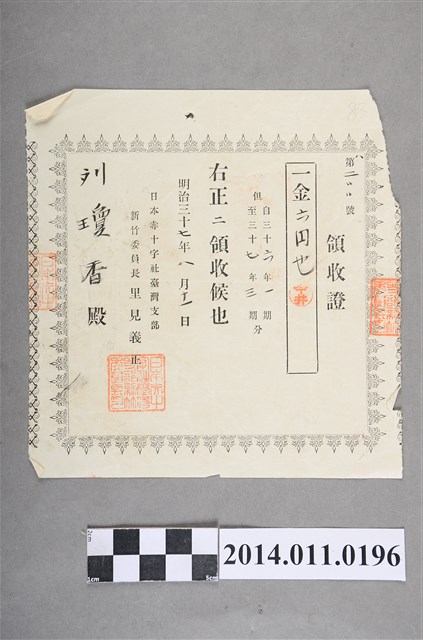 領收證
一金六円也
但 自三十六年一期
至三十七年三期分
右正ニ領收候也
明治三十七年八月十一日
日本赤十字社臺灣支部
新竹委員長里見義正
瓊香殿
2cm
1cm
5cm
2014.011.0196